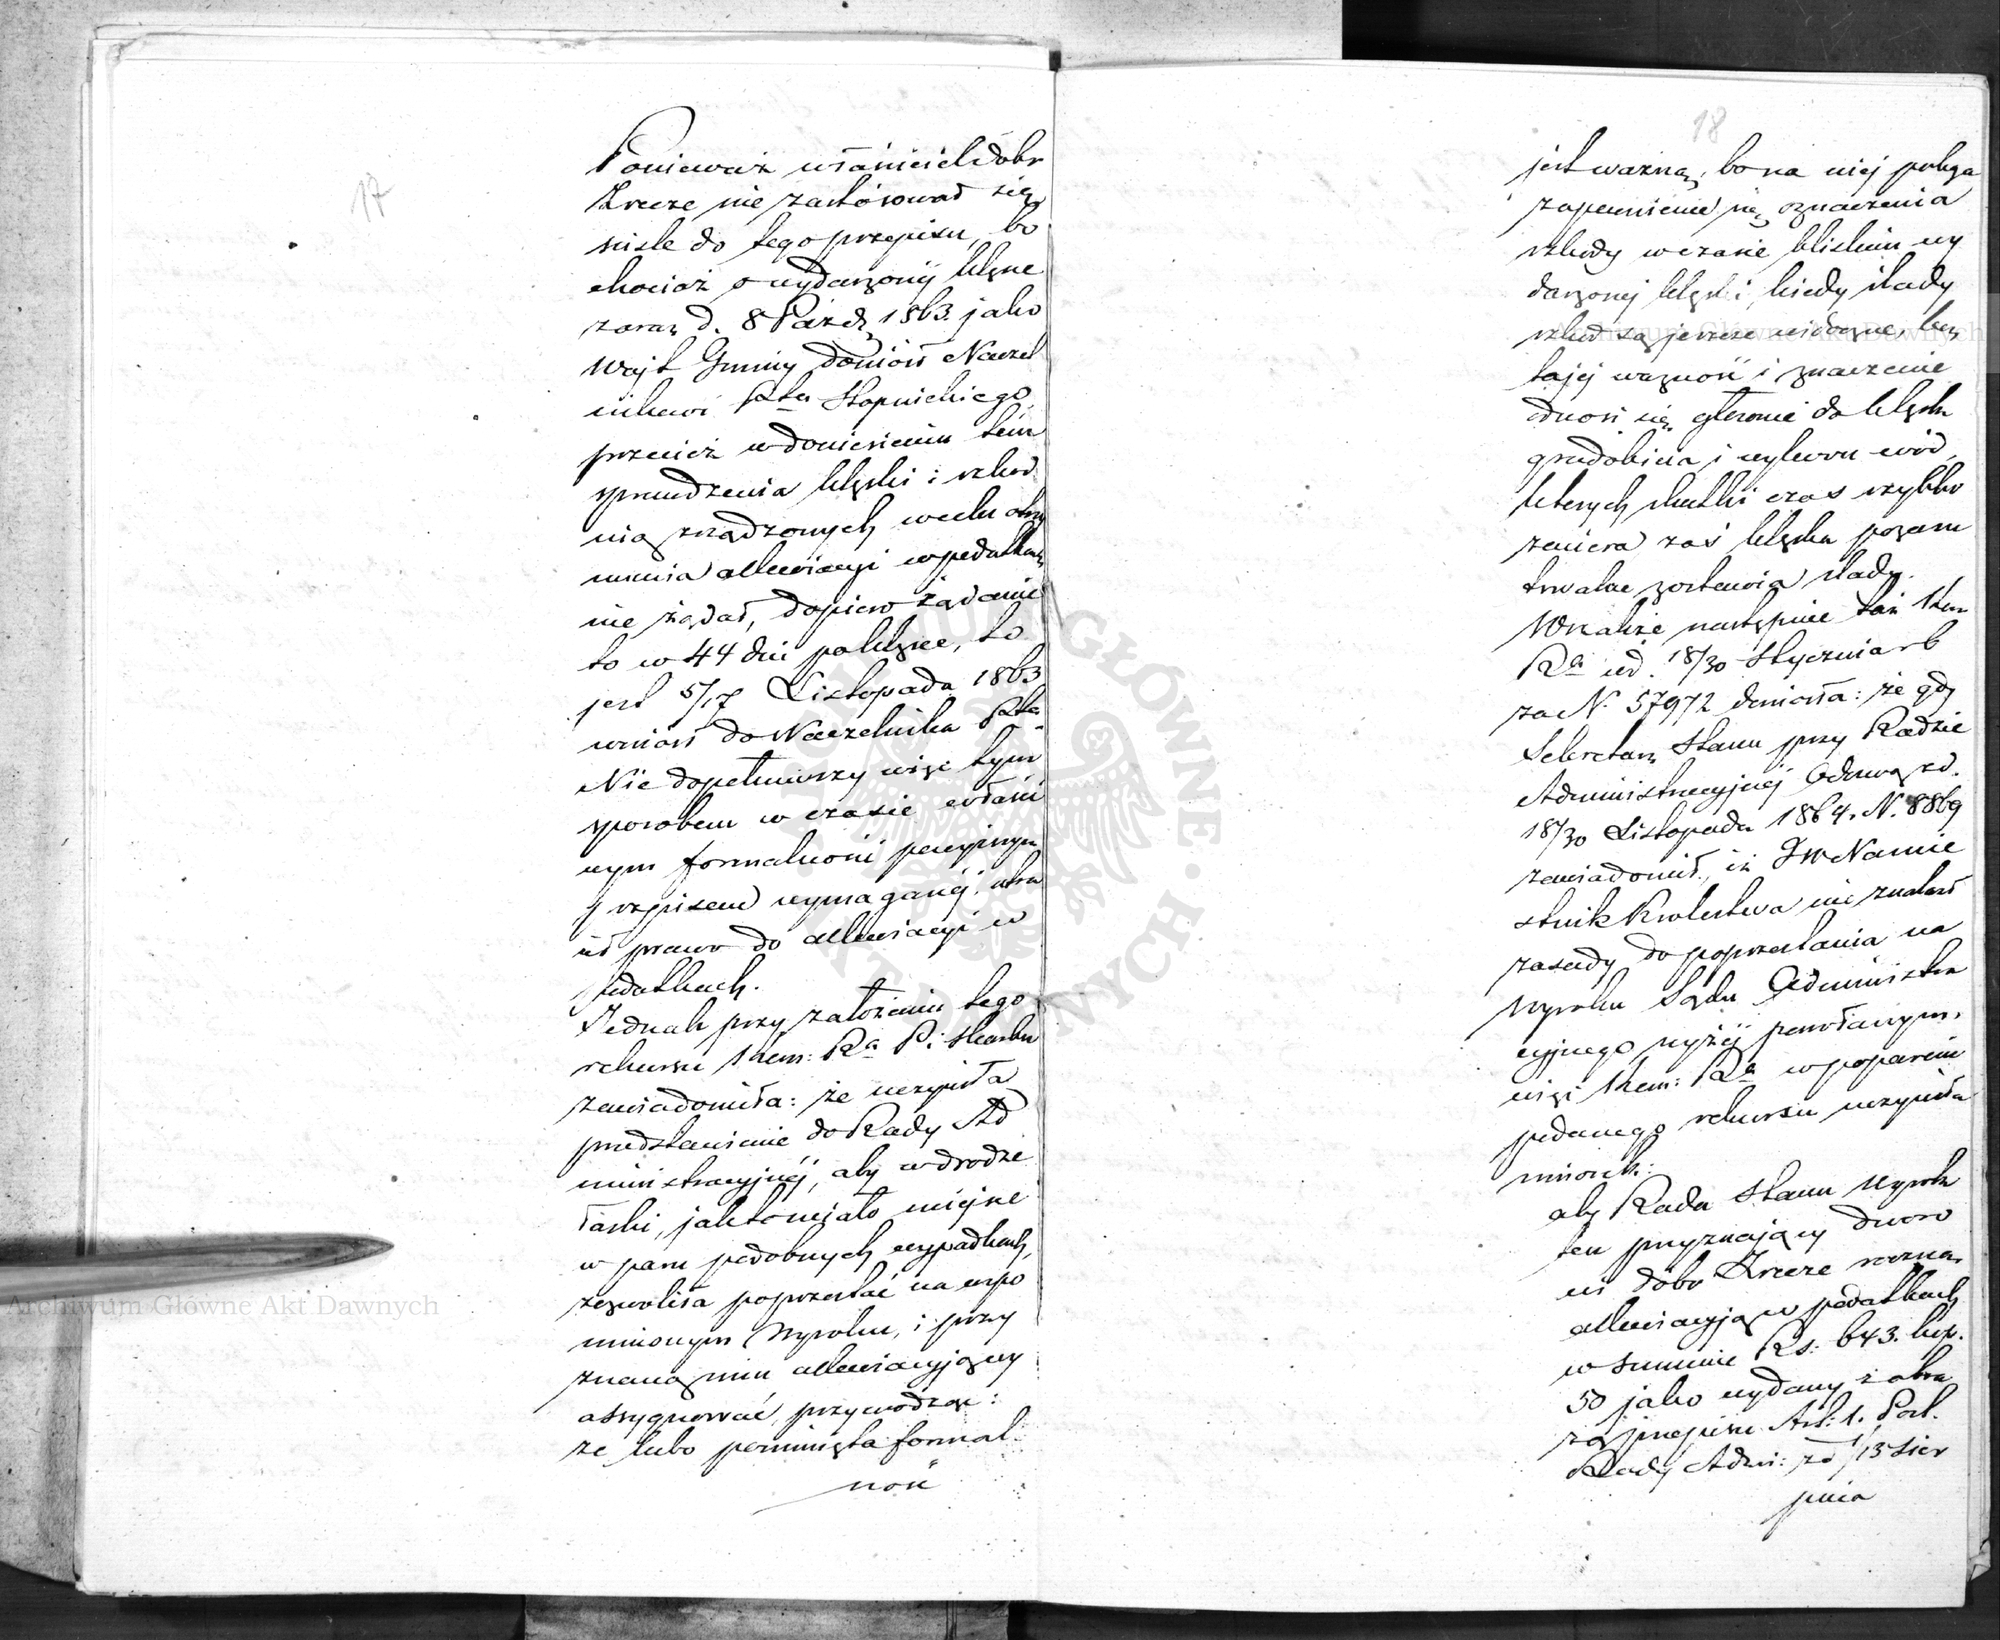 17
Ponieważ właściciel dobr
Zrecze nie zastósował się
ściśle do tego przepisu, bo
chociaż o wydarzonéj klęsce
zaraz d. 8 Paźdz 1863. jako
Wójt Gminy doniósł Naczel
nikowi Ptu Stopnickiego
przecież w doniesieniu tém
sprawdzenia klęski i szkod
nią zrządzonych w celu otrzy
mania allewiacyi w podatkach
nie żądał, dopiero żądanie
to w 44 dni po klęsce, to
jest 5/17 Listopada 1863
wniósł do Naczelnika Ptu
Nie dopełniwszy więc tym
sposobem w czasie właści
wym formalności powyższym
przepisem wymaganéj, utra
cił prawo do allewiacyi w
podatkach.
Jednak przy założeniu tego
rekursu Kom: Ra P. i Skarbu
zawiadomiła: że uczyniła
przedstawienie do Rady Ad
ministracyjnéj, aby w drodze
łaski, jak to miało miejsce
w paru podobnych wypadkach,
zezwoliła poprzestać na wspo
mnionym Wyroku, i przy
znaną nim allewiacyją wy
asygnować, przywodząc:
że lubo pominięta formal
ność
18
jest ważną, bo na niej polega
zapewnienie się oznaczenia
szkody w czasie bliskim wy
darzonej klęski, kiedy ślady
szkod są jeszcze widoczne, lecz
tajéj ważność i znaczenie
odnosi się głównie do klęsk
gradobicia i wylewu wód,
których skutki czas szybko
zaciera zaś klęska pożaru
trwalsze zostawia ślady.
Wszakże następnie taż Kom
Ra od. 18/30 Stycznia r b
za N. 57972 doniosła: że gdy
Sekretarz Stanu przy Radzie
Administracyjnej Odezwą zd.
18/30 Listopada 1864. N. 8869
zawiadomił, iż JW Namie
stnik Krolestwa nie znalazł
zasady do poprzestania na
Wyroku Sądu Administra
cyjnego wyżéj powołanym,
więc Kom: Ra w poparciu
podanego rekursu uczyniła
wniosek:
aby Rada Stanu Wyrok
ten przyznający dworo
wi dobr Zrecze roczną
allewiacyją w podatkach
w summie Rs. 643. kop.
50 jako wydany z obra
zą przepisu Art: 1. Post.
Rady Admi: zd 1/13 Sier
pnia
Archiwum Główne Akt Dawnych
Archiwum Główne Akt Dawnych
ARCHIWUM GŁÓWNE AKT DAWNYCH